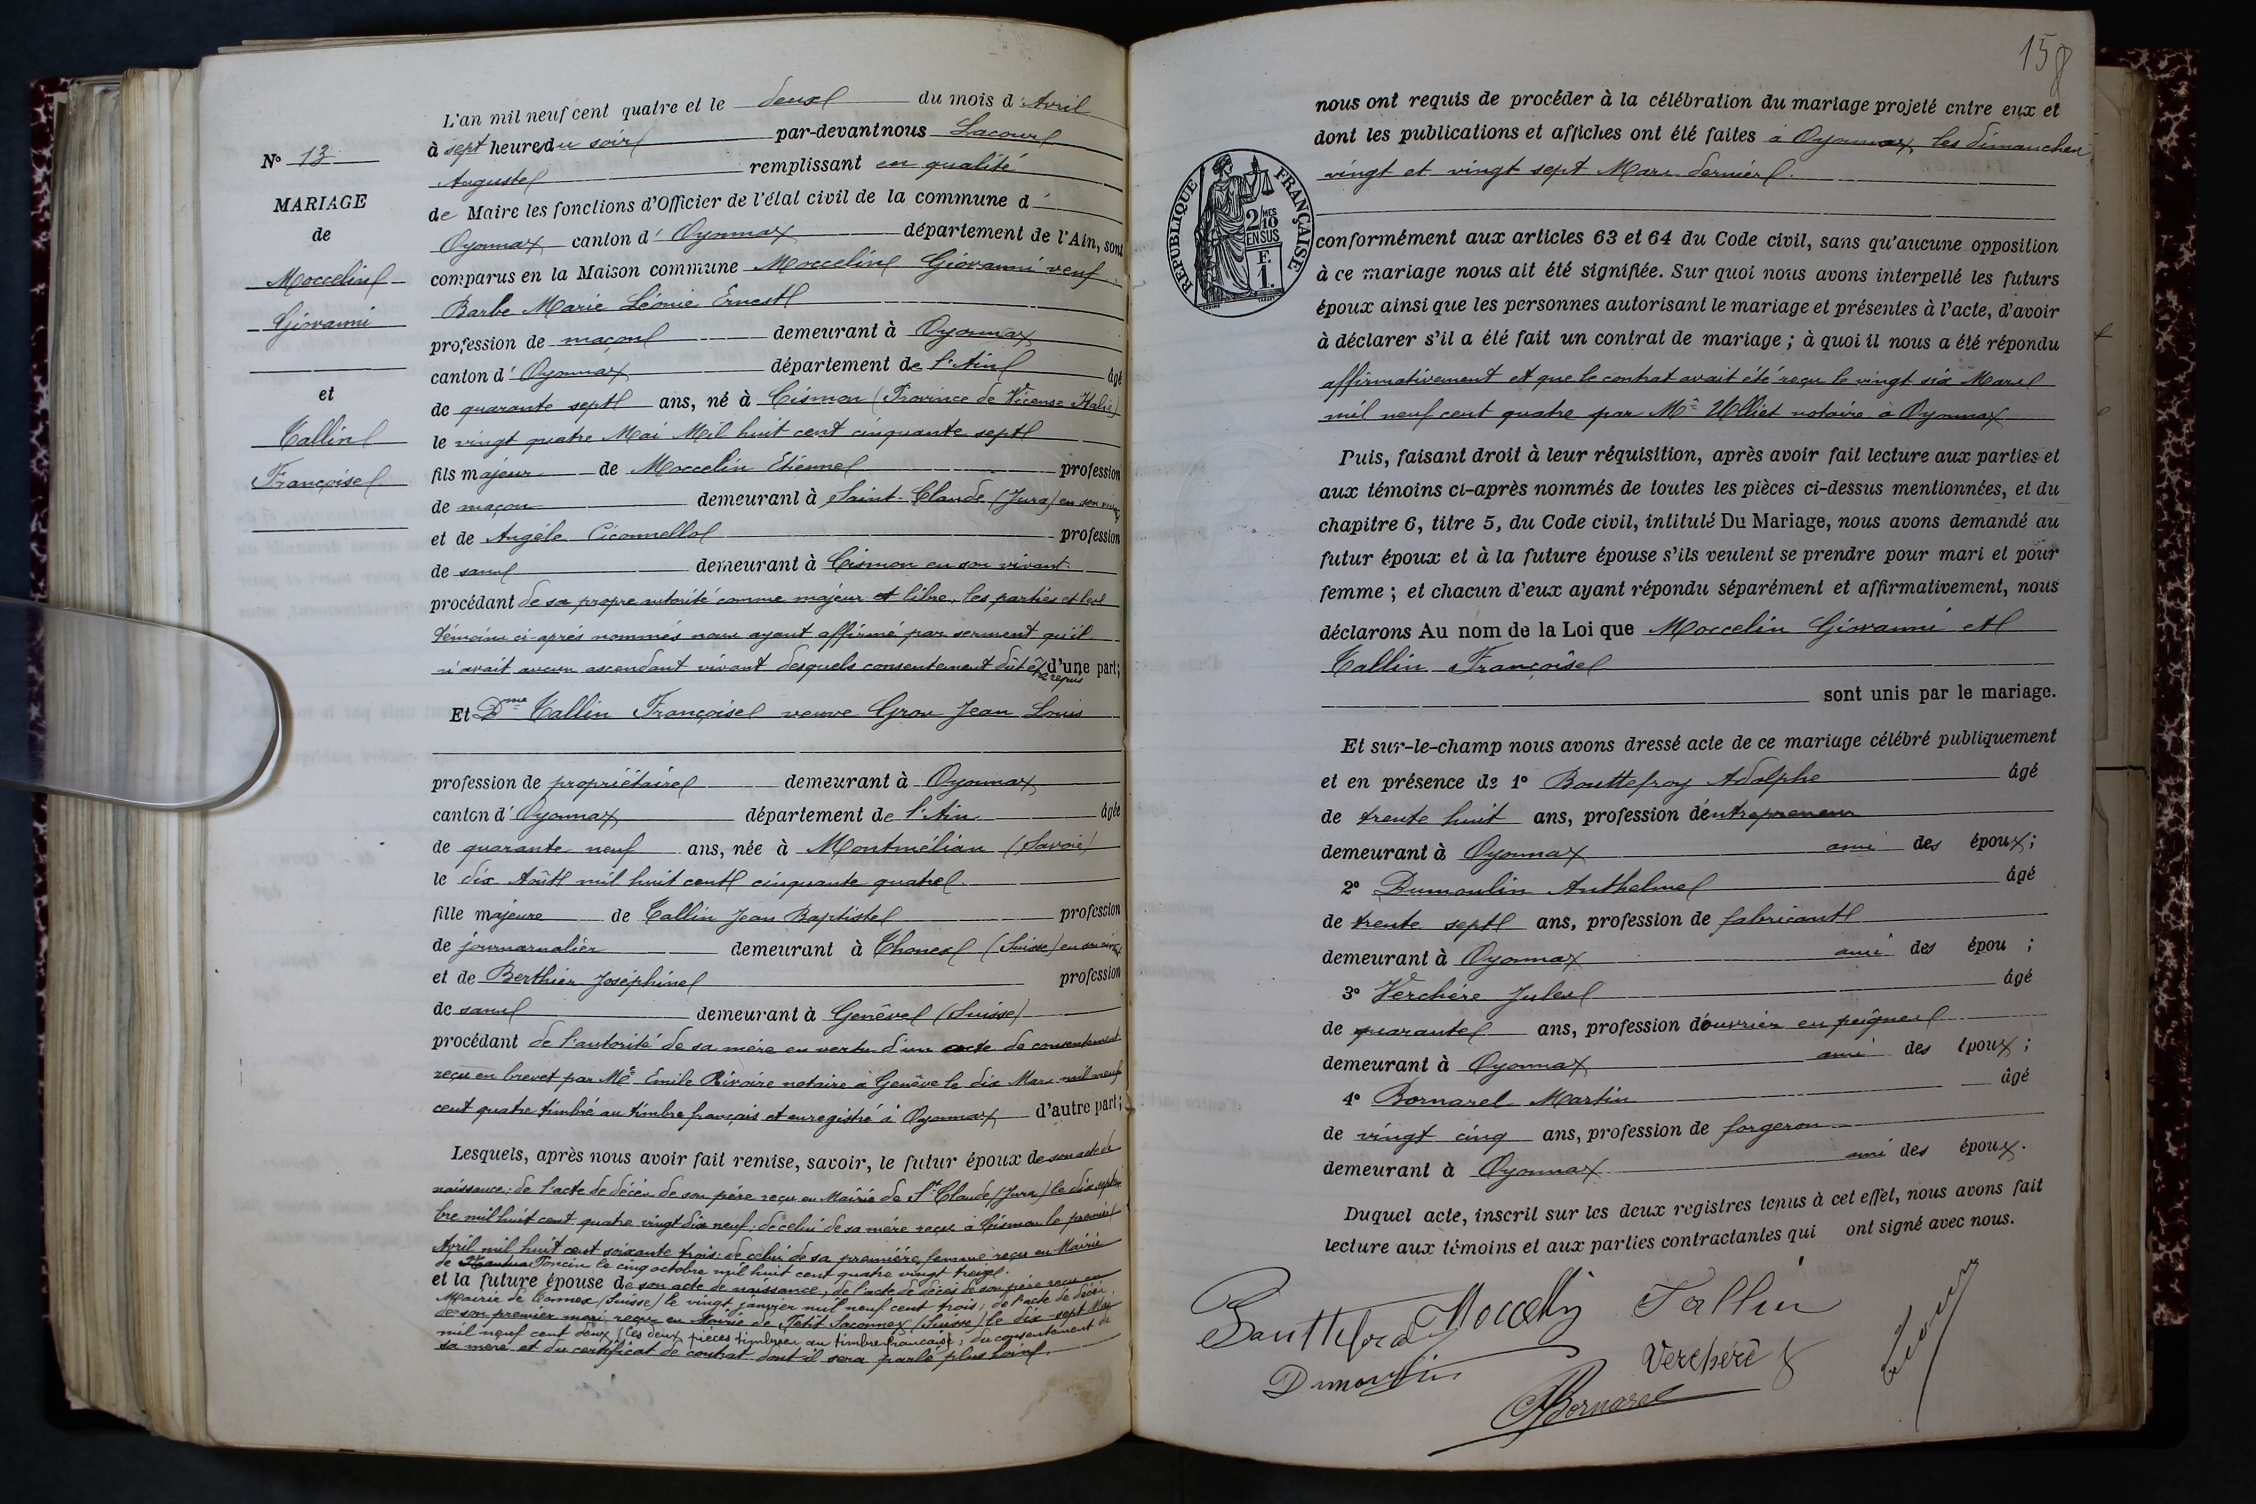 158
N° 13
MARIAGE
de
Moccelin
Giovanni
et
Tallin
Françoise
L'an mil neuf cent quatre et le deux du mois d'Avril
à sept heures du soir par-devant nous Lacour
Auguste remplissant en qualité
de Maire les fonctions d'Officier de l'état civil de la commune d'
Oyonnax canton d'Oyonnax département de l'Ain, sont
comparus en la Maison commune Moccelin Giovanni veuf
Barbe Marie Léonie Ernest
profession de maçon demeurant à Oyonnax
canton d'Oyonnax département de l'Ain âgé
de quarante sept ans, né à Cismon (Province de Vicense Italie)
le vingt quatre Mai Mil huit cent cinquante sept
fils majeur de Moccelin Etienne profession
de maçon demeurant à Saint-Claude (Jura) en son vivant
et de Angèle Ciconnello profession
de sans demeurant à Cismon en son vivant
procédant de sa propre autorité comme majeur et libre, les parties et les
témoins ci-après nommés nous ayant affirmé par serment qu'il
n'avait aucun ascendant vivant desquels consentement dût être requis d'une part;
Et Dme Tallin Françoise veuve Gros Jean Louis
profession de propriétaire demeurant à Oyonnax
canton d'Oyonnax département de l'Ain âgée
de quarante neuf ans, née à Montmélian (Savoie)
le dix Août mil huit cent cinquante quatre
fille majeure de Tallin Jean Baptiste profession
de journarnalier demeurant à Thonex (Suisse) en son vivant
et de Berthier Joséphine profession
de sans demeurant à Genève (Suisse)
procédant de l'autorité de sa mère en vertu d'un acte de consentement
reçu en brevet par Me Emile Rivoire notaire à Genève le dix Mars mil neuf
cent quatre timbré au timbre français et enregistré à Oyonnax d'autre part;
Lesquels, après nous avoir fait remise, savoir, le futur époux de son acte de
naissance; de l'acte de décès de son père reçu en Mairie de St Claude (Jura) le dix septem
bre mil huit cent quatre vingt dix neuf; de celui de sa mère reçu à Cismon le premier
Avril mil huit cent soixante trois; de celui de sa première femme reçu en Mairie
de Poncin le cinq octobre mil huit cent quatre vingt treize.
et la future épouse de son acte de naissance, de l'acte de décès de son père reçu en
Mairie de Connex (Suisse) le vingt janvier mil neuf cent trois; de l'acte de décès
de son premier mari reçu en Mairie de Petit Saconnex (Suisse) le dix-sept Mai
mil neuf cent deux (les deux pièces timbrées au timbre français); du consentement de
sa mère et du certificat de contrat dont il sera parlé plus loin.
nous ont requis de procéder à la célébration du mariage projeté entre eux et
dont les publications et affiches ont été faites à Oyonnax, les dimanches
vingt et vingt sept Mars dernier.
RÉPUBLIQUE FRANÇAISE
2/10
MES
EN SUS
F.
1.
conformément aux articles 63 et 64 du Code civil, sans qu'aucune opposition
à ce mariage nous ait été signifiée. Sur quoi nous avons interpellé les futurs
époux ainsi que les personnes autorisant le mariage et présentes à l'acte, d'avoir
à déclarer s'il a été fait un contrat de mariage; à quoi il nous a été répondu
affirmativement et que le contrat avait été reçu le vingt six Mars
mil neuf cent quatre par Me Ulliet notaire à Oyonnax
Puis, faisant droit à leur réquisition, après avoir fait lecture aux parties et
aux témoins ci-après nommés de toutes les pièces ci-dessus mentionnées, et du
chapitre 6, titre 5, du Code civil, intitulé Du Mariage, nous avons demandé au
futur époux et à la future épouse s'ils veulent se prendre pour mari et pour
femme; et chacun d'eux ayant répondu séparément et affirmativement, nous
déclarons Au nom de la Loi que Moccelin Giovanni et
Tallin Françoise
sont unis par le mariage.
Et sur-le-champ nous avons dressé acte de ce mariage célébré publiquement
et en présence de 1° Bouttefroy Adolphe âgé
de trente huit ans, profession d'entrepreneur
demeurant à Oyonnax ami des époux;
2° Dumoulin Anthelme âgé
de trente sept ans, profession de fabricant
demeurant à Oyonnax ami des épou ;
3° Verchère Jules âgé
de quarante ans, profession d'ouvrier en peignes
demeurant à Oyonnax ami des époux;
4° Bornarel Martin âgé
de vingt cinq ans, profession de forgeron
demeurant à Oyonnax ami des époux.
Duquel acte, inscrit sur les deux registres tenus à cet effet, nous avons fait
lecture aux témoins et aux parties contractantes qui ont signé avec nous.
Moccelin Tallin
Dumoulin Verchère
Bornarel